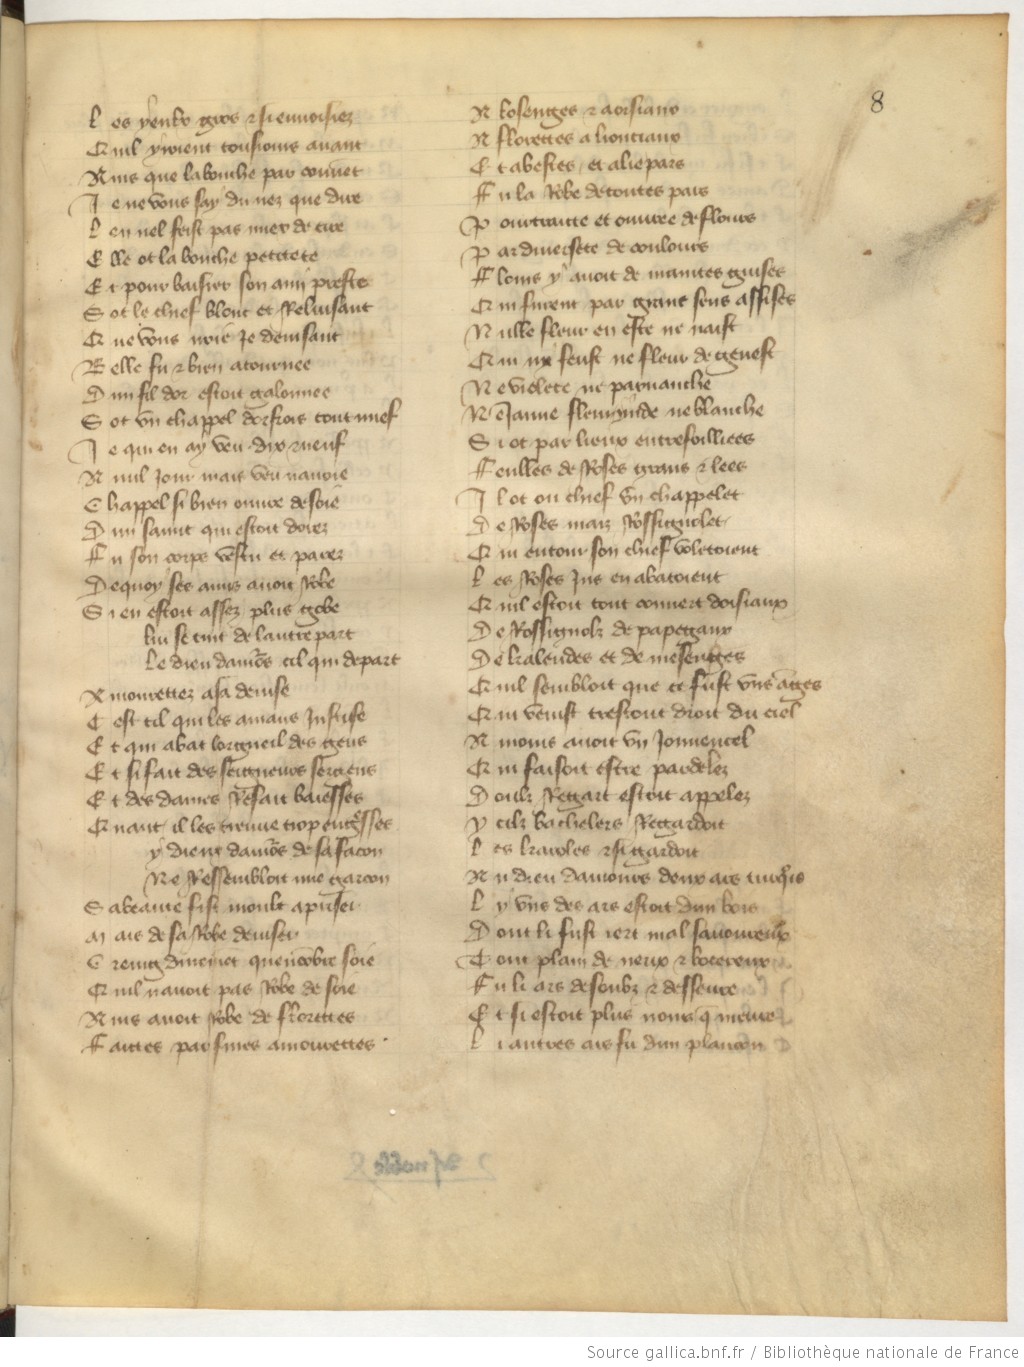 8
L es yeulx gros et si enuoisiez
Q uil y rient tousiours auant
A ins que la bouche par couuent
J e ne vous say du nez que dire
L en nel feist pas mier de cire
E lle ot la bouche petitete
E t pour baisier son ami preste
S ot le chief blont et Reluisant
Q ne vous iroie Je deuisant
B elle fu et bien atournee
D un fil dor estoit galonnee
S ot vn chappel dorfrois tout neuf
J e qui en ay veu dix et neuf
A nul Jour mais veu nauoie
C happel si bien ouure de soie
D un samit qui estoit dorez
F u son corps vestu et parez
D e quoy ses amis auoit Robe
S i en estoit assez plus gobe
lui se tint de lautre part
Le dieu damours cil qui depart
A mourettez a sa deuise
C est cil qui les amans Justise
E t qui abat lorgueil des gens
E t si fait des seigneurs sergens
E t des dames Refait baiesses
Q uant il les treuue trop engresses
y dieux damours de sa facon
Ne Ressembloit une garcon
S a beaute fist moult a prisier
M ais de sa Robe deuiser
C reing durement quencombre soie
Q uil nauoit pas Robe de soie
A ins auoit Robe de florettes
F aites par fines amourettes
A losenges et a oisiaux
A florettes a lionciaux
E t a bestes et a liepars
F u la Robe de toutes pars
P ourtraite et ouuree de flours
P ar diuersete de coulours
F lours y auoit de maintes guises
Q ui furent par grant sens assises
N ulle fleur en este ne naist
Q ui ny feust ne fleur de genest
N e violete ne paruanche
N e Jaune fleur ynde ne blanche
S i ot par lieux entrefoilliees
F eulles de Roses grans et lees
J l ot ou chief vn chappelet
D e Roses maiz Rossignolet
Q ui entour son chief voletoient
L es Roses Jus en abatoient
Q uil estoit tout couuert doisiaux
D e Rossignolz de papegaux
D e kalendes et de mesenges
Q uil sembloit que ce fust vns anges
Q ui venist trestout droit du ciel
A mours auoit vn Jouuencel
Q ui faisoit estre par delez
D oulz Regart estoit appelez
y cilz bachelers Regardoit
L es karoles et si gardoit
A u dieu damours deux ars turquois
L y vns des ars estoit dun bois
D ont li fust iert mal sauoureux
T out plain de neux et bocereux
F u li ars desoubz et desseure
E t si estoit plus noirs que meure
L i autres ars fu dun plancon
Source gallica.bnf.fr / Bibliothèque nationale de France